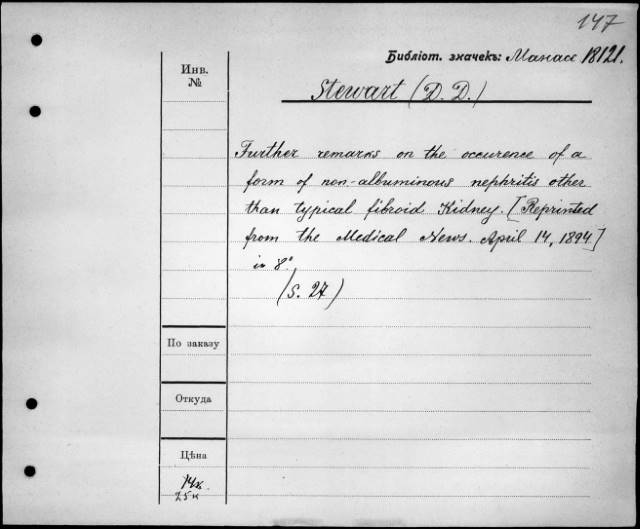 147
Библіот. значекъ: Манасс 18121.
Инв.
№
Stewart (D. D.)
Further remarks on the occurence of a
form of non-albuminous nephritis other
than typical fibroid Kidney. [Reprinted
from the Medical News. April 14, 1894]
in 8°.
(S. 27)
По заказу
Откуда
Цѣна
14к
25к